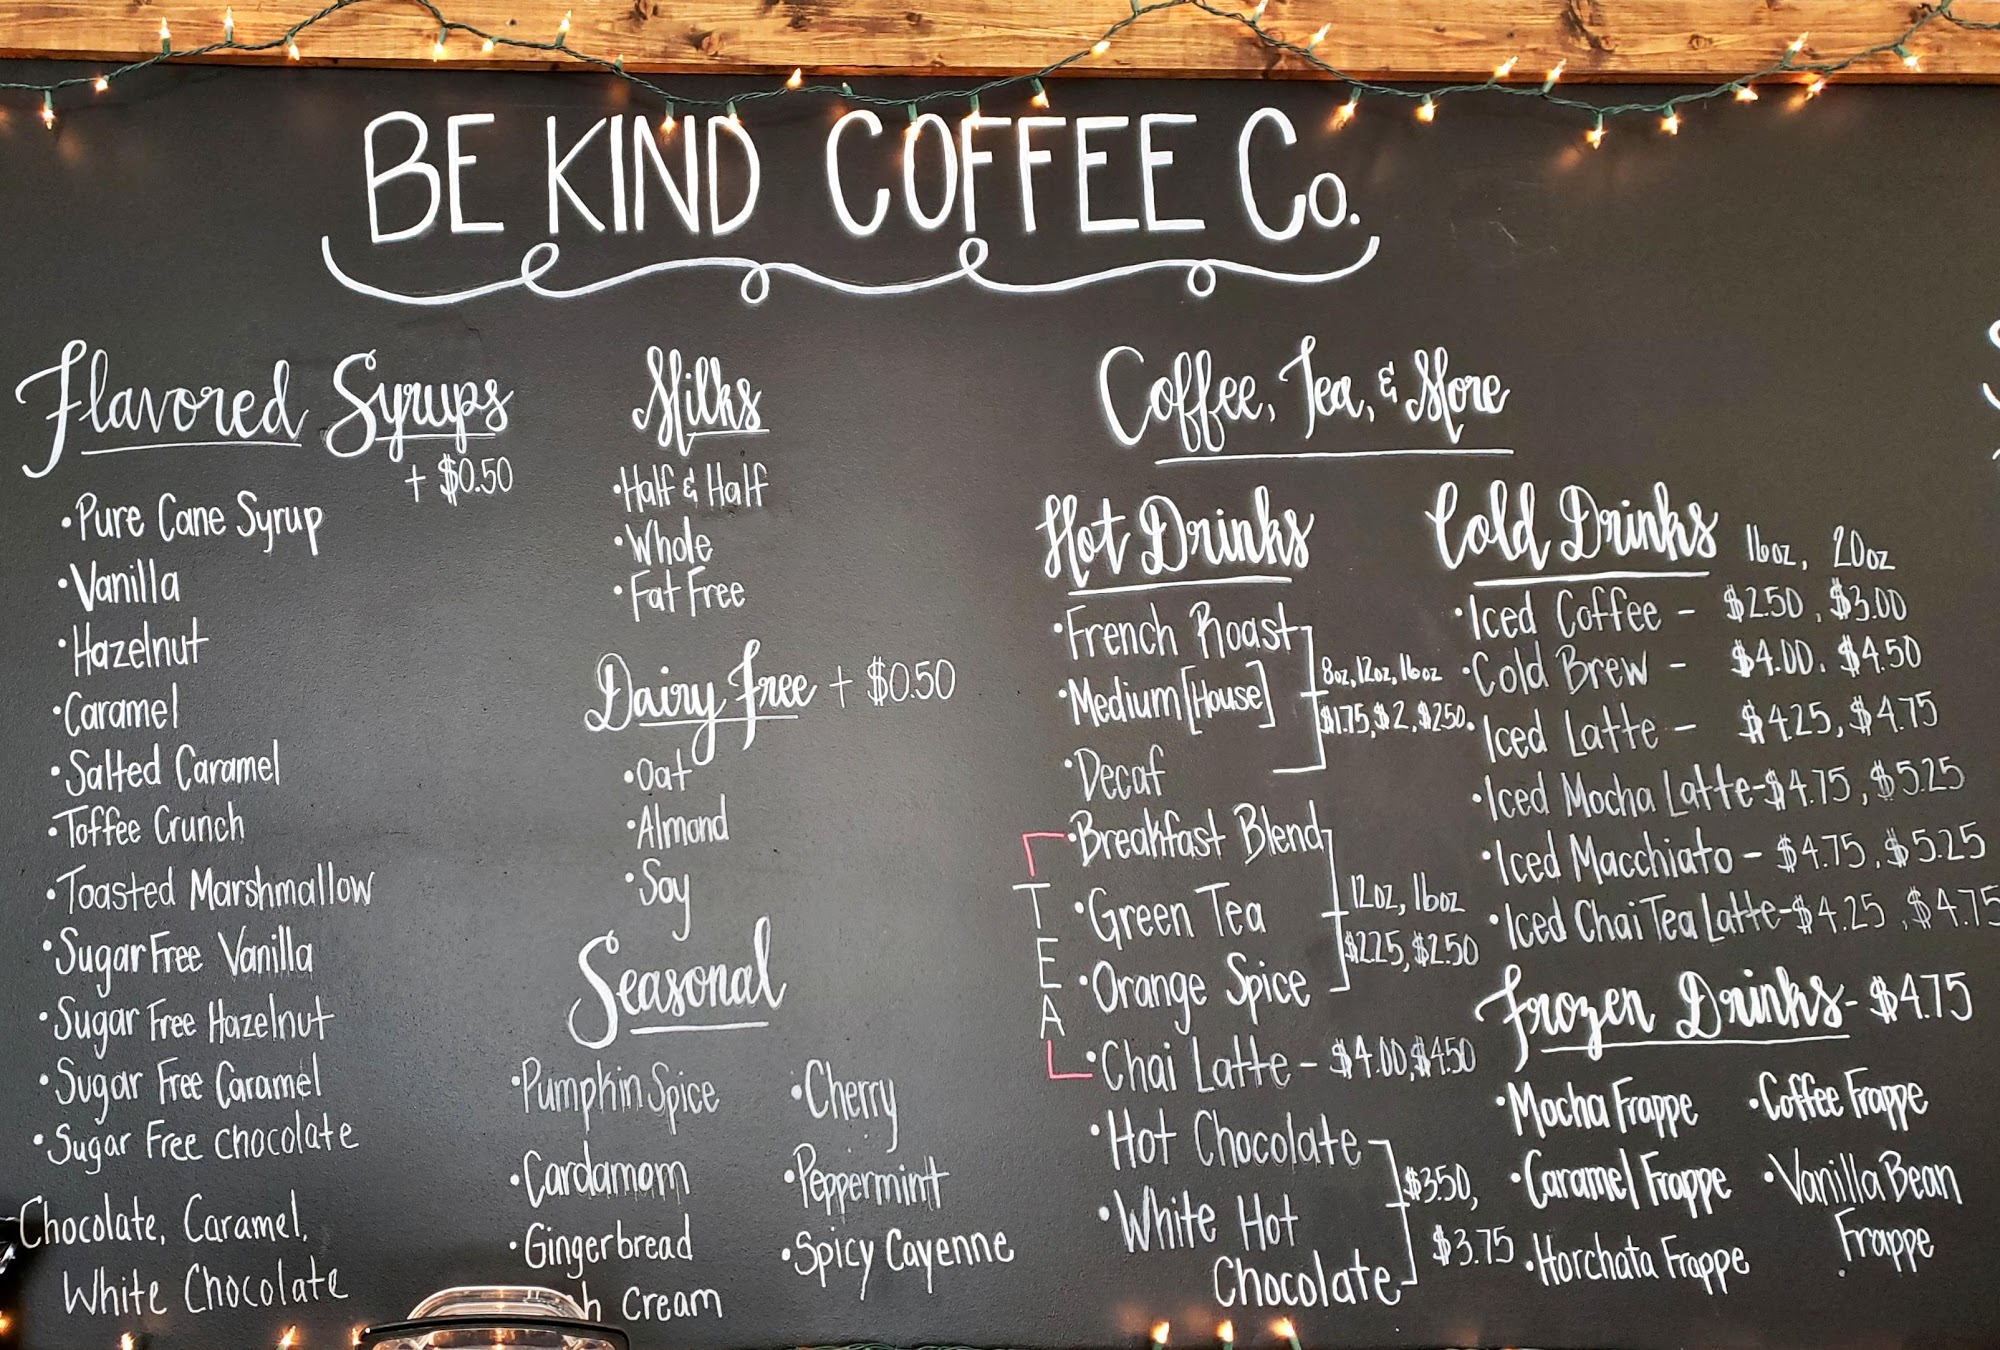 BE KIND COFFEE Co.
Flavored Syrups
+ $0.50
• Pure Cane Syrup
• Vanilla
• Hazelnut
• Caramel
• Salted Caramel
• Toffee Crunch
• Toasted Marshmallow
• Sugar Free Vanilla
• Sugar Free Hazelnut
• Sugar Free Caramel
• Sugar Free Chocolate
Chocolate, Caramel,
White Chocolate
Milks
• Half & Half
• Whole
• Fat Free
Dairy Free + $0.50
• Oat
• Almond
• Soy
Seasonal
• Pumpkin Spice
• Cardamom
• Gingerbread
Cream
• Cherry
• Peppermint
• Spicy Cayenne
Coffee, Tea, & More
Hot Drinks
• French Roast
• Medium [House]
• Decaf
8oz, 12oz, 16oz
$1.75, $2, $2.50
TEA
• Breakfast Blend
• Green Tea
• Orange Spice
12oz, 16oz
$2.25, $2.50
• Chai Latte - $4.00, $4.50
• Hot Chocolate
• White Hot
Chocolate
$3.50,
$3.75
Cold Drinks 16oz, 20oz
• Iced Coffee - $2.50, $3.00
• Cold Brew - $4.00, $4.50
• Iced Latte - $4.25, $4.75
• Iced Mocha Latte - $4.75, $5.25
• Iced Macchiato - $4.75, $5.25
• Iced Chai Tea Latte - $4.25, $4.75
Frozen Drinks - $4.75
• Mocha Frappe
• Caramel Frappe
• Horchata Frappe
• Coffee Frappe
• Vanilla Bean
Frappe